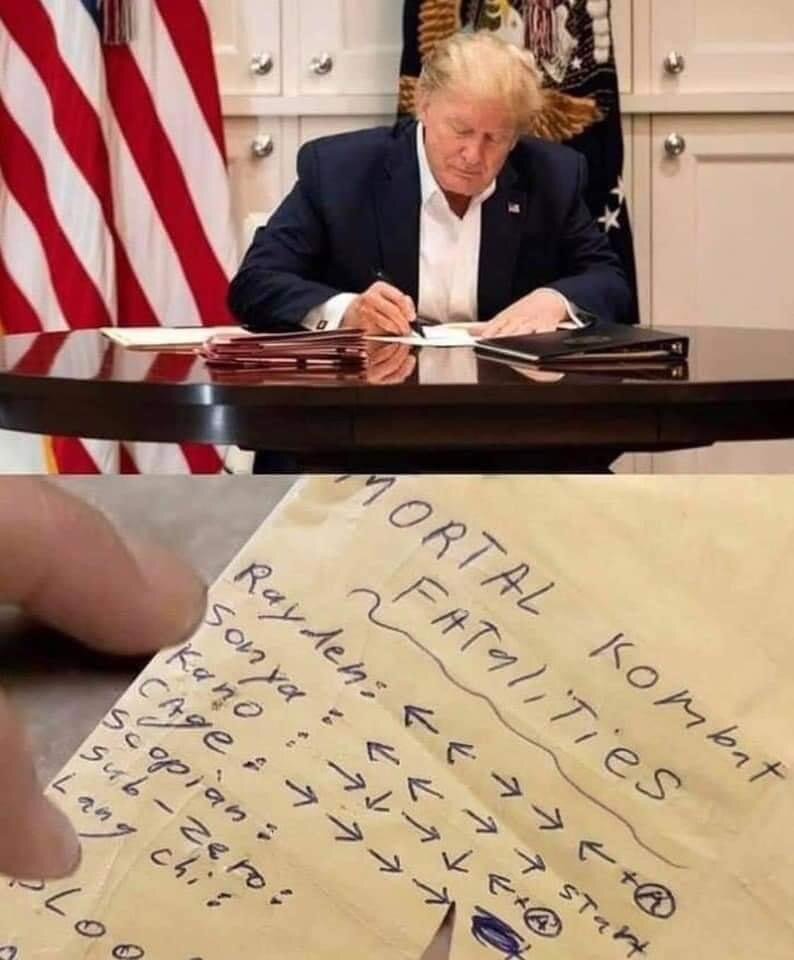 MORTAL KOMBAT
FATALITIES
Rayden: ← ← → → ← + Ⓐ
Sonya: ← ← → → START
Kano: → ↓ → ↓ ← + Ⓐ
CAge: → → → → →
Scopian:
Sub-Zero:
Lang chi:
LOO